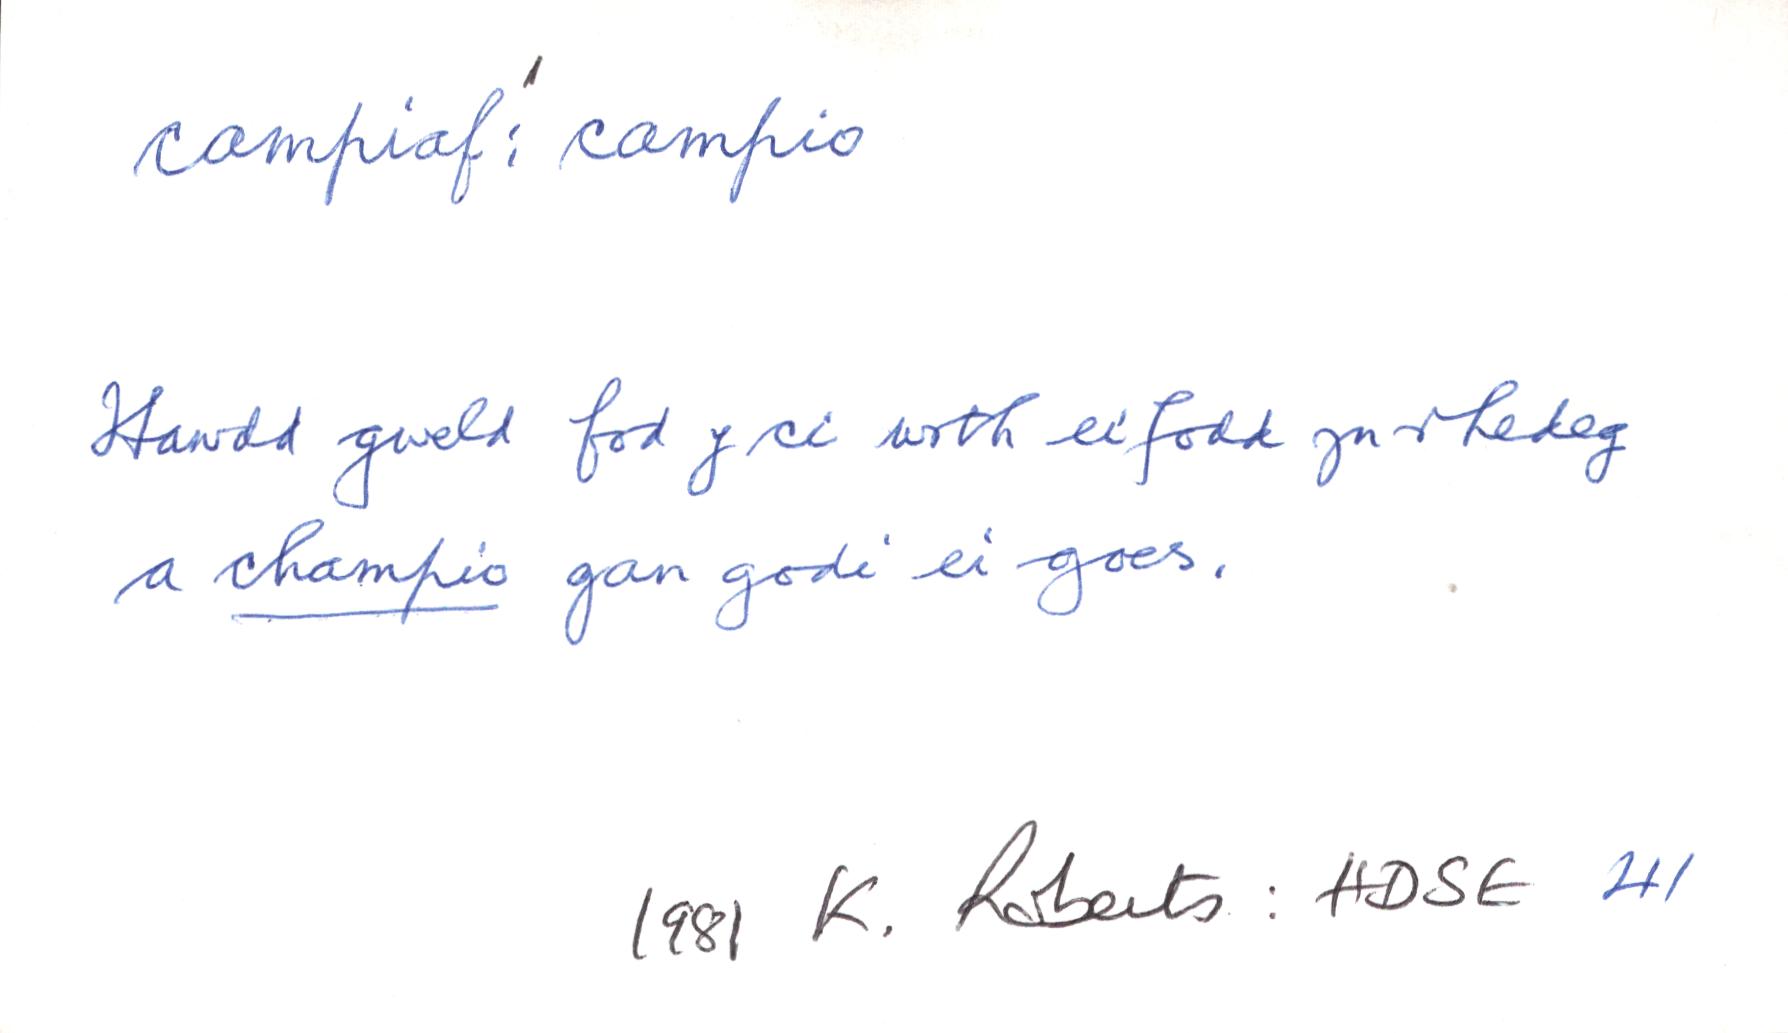 campiaf¹: campio
Hawdd gweld fod y ci wrth ei fodd yn rhedeg
a champio gan godi ei goes.
1981 K. Roberts : HDSE 41